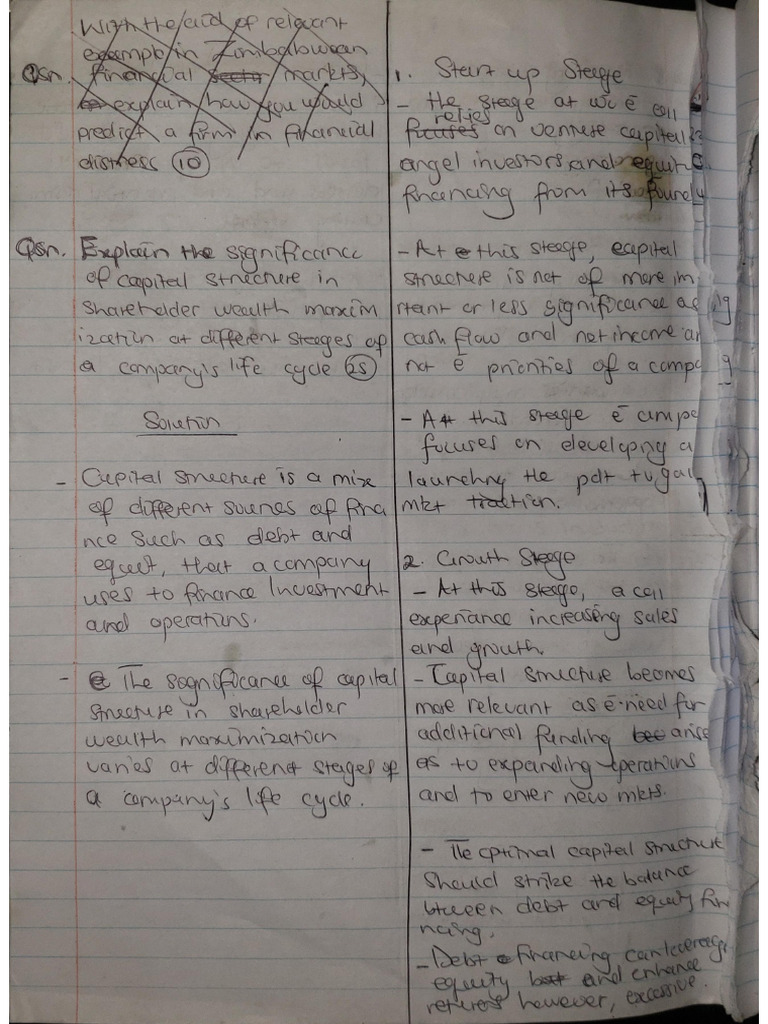 With the aid of relevant
example in Zimbabwean
Qsn. financial sector markets,
explain how you would
predict a firm in financial
distress (10)
Qsn. Explain the significance
of capital structure in
shareholder wealth maxim
ization at different stages of
a company's life cycle (25)
Solution
- Capital structure is a mix
of different sources of fina
nce such as debt and
equit, that a company
uses to finance Investment
and operations.
- The significance of capital
structure in shareholder
wealth maximization
varies at different stages of
a company's life cycle.
1. Start up Stage
- the stage at wc ē
relies
focuses on venture capital
angel investors, and equit
financing from its found
- At this stage, capital
structure is not of more im
rtant or less significance as
cash flow and net income ar
not ē priorities of a comp
- At this stage ē comp
focuses on developing a
launching the pdt to gai
mkt traction.
2. Growth Stage
- At this stage, a
experiance increasing sales
and growth.
- Capital structure becomes
more relevant as ē need for
additional funding arise
as to expanding operations
and to enter new mkts.
- The optimal capital structure
should strike the balance
btween debt and equity fin
ncing.
- Debt financing can leverage
equity but and enhance
returns however, excessive